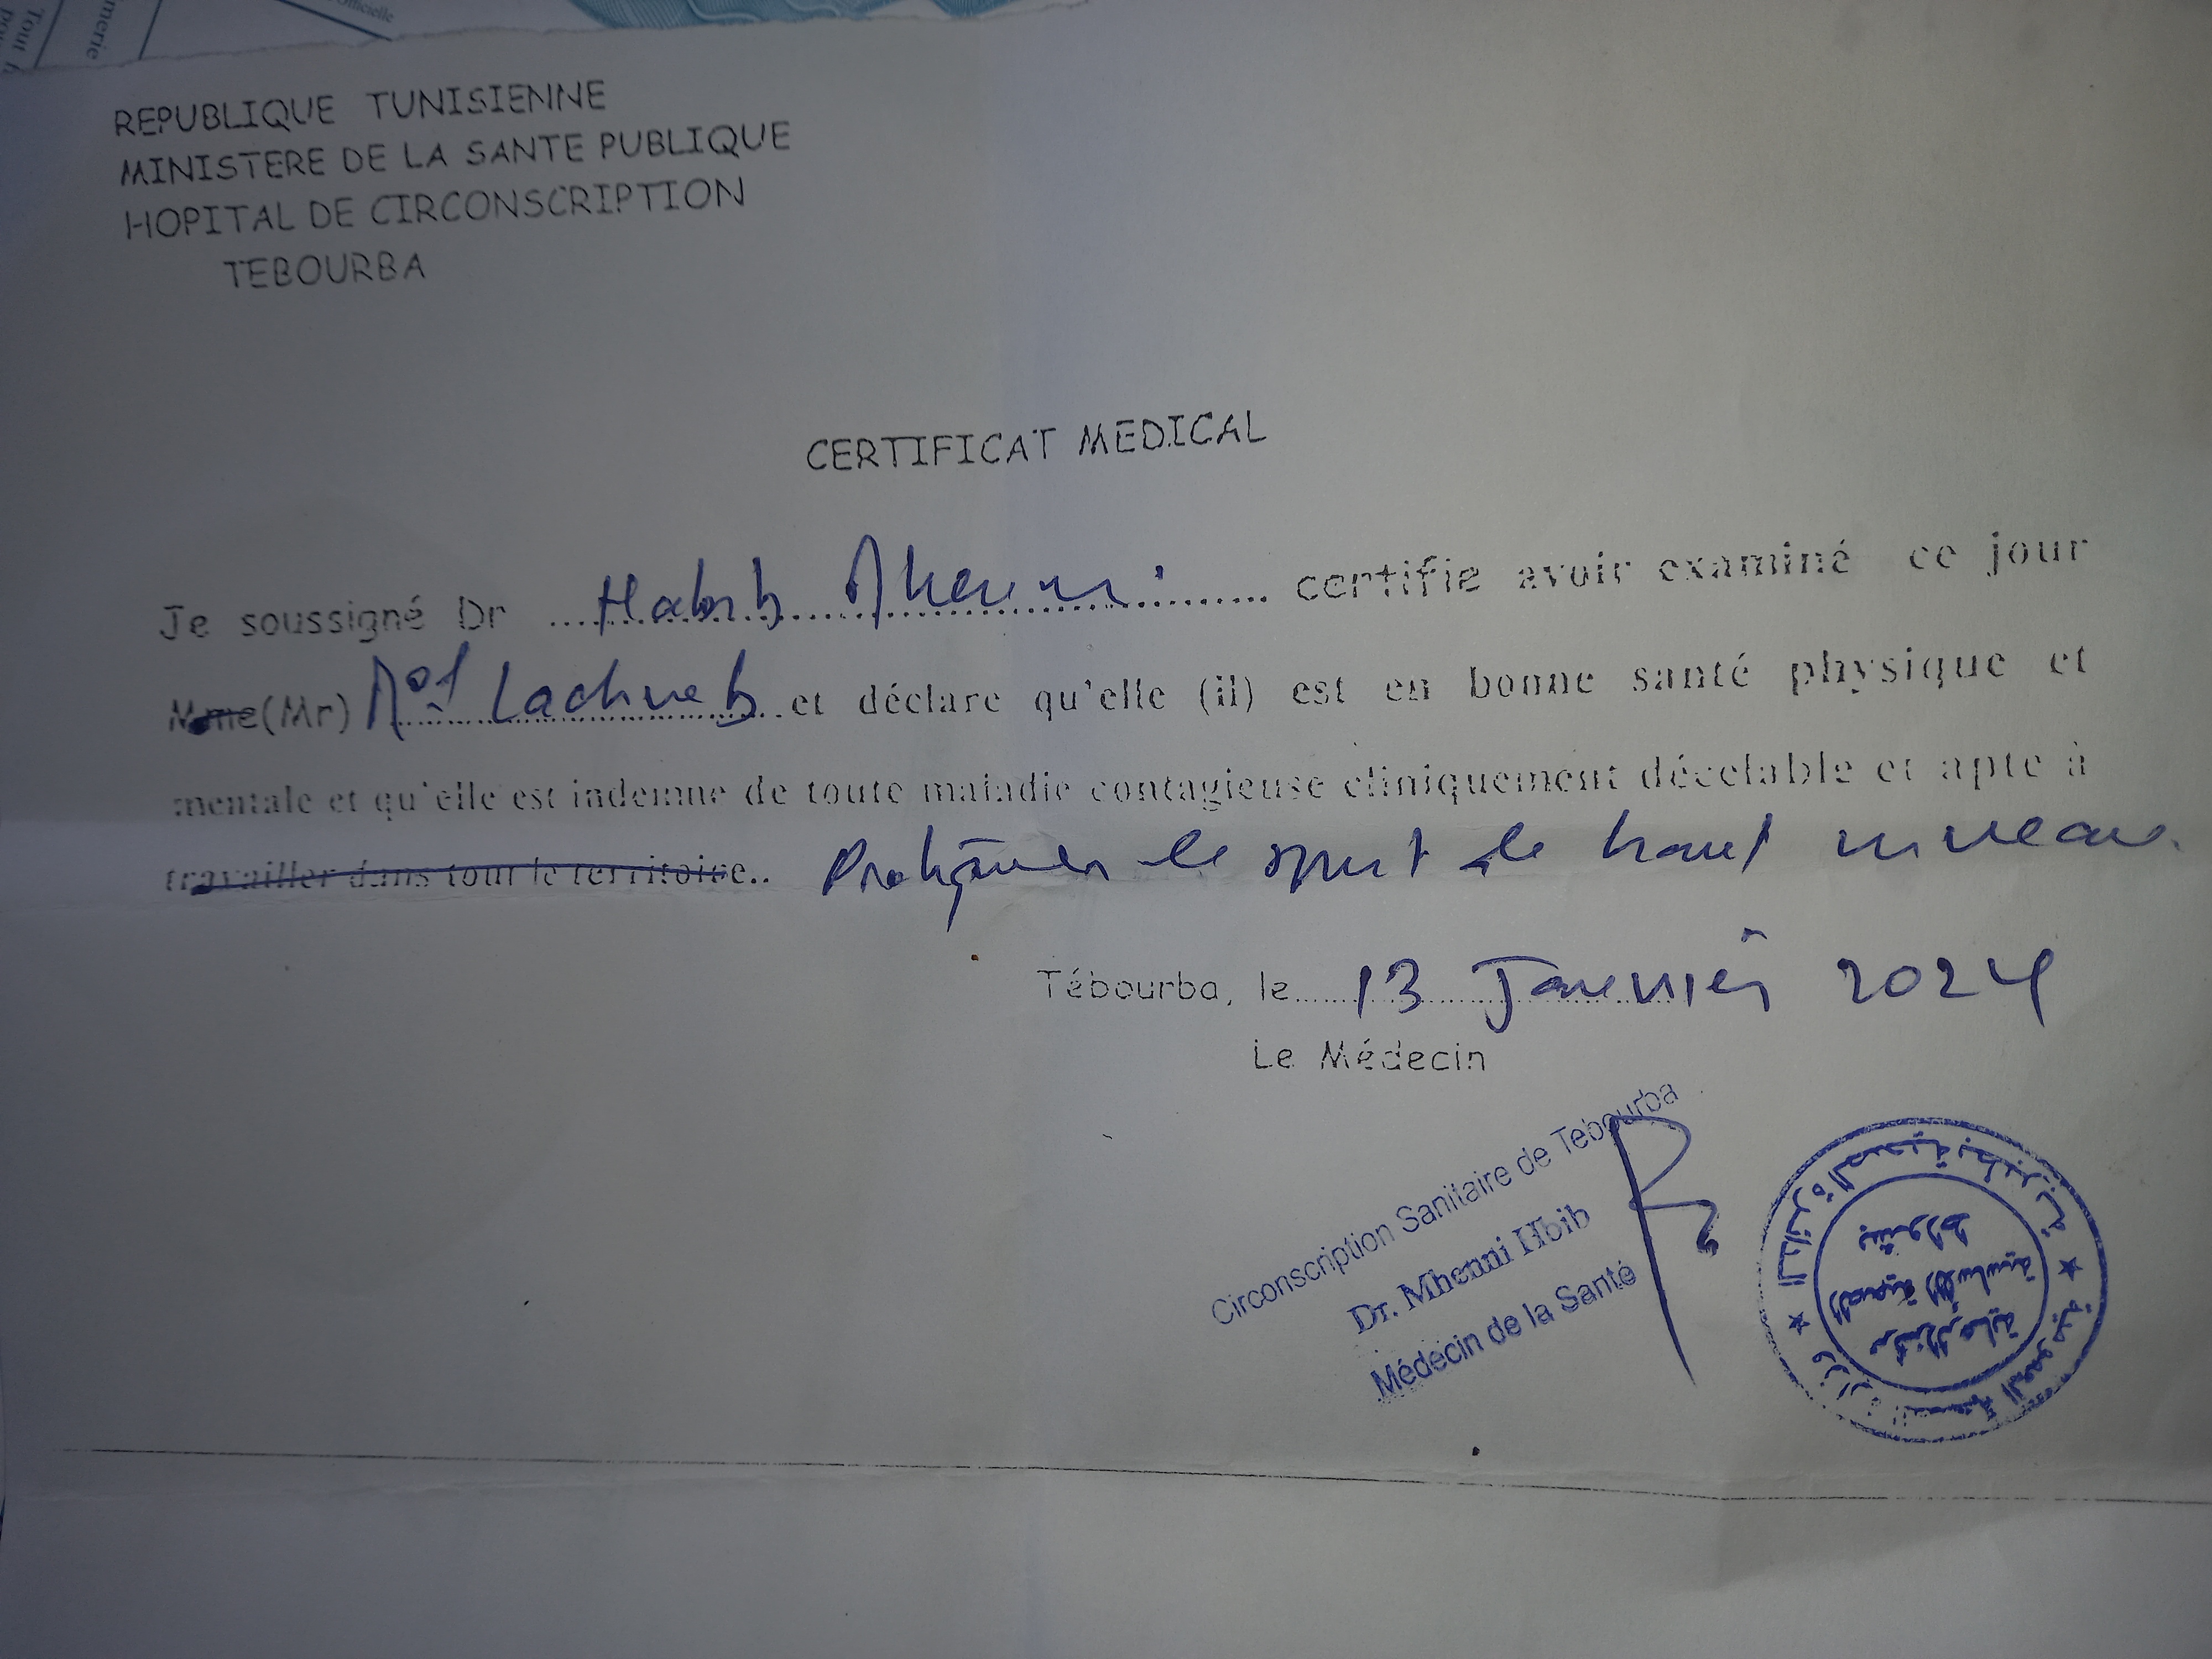 Officielle
merie
Tout
REPUBLIQUE TUNISIENNE
MINISTERE DE LA SANTE PUBLIQUE
HOPITAL DE CIRCONSCRIPTION
TEBOURBA
CERTIFICAT MEDICAL
Je soussigné Dr Habib Mhenni certifie avoir examiné ce jour
Mme (Mr) Lachheb et déclare qu'elle (il) est en bonne santé physique et
mentale et qu'elle est indemne de toute maladie contagieuse cliniquement décelable et apte à
travailler dans tout le territoire.. Pratiquer le sport de haut niveau.
Tébourba, le 13 Janvier 2024
Le Médecin
Circonscription Sanitaire de Tebourba
Dr. Mhenni Hbib
Médecin de la Santé
الدائرة الصحية بطبربة
وزارة الصحة العمومية
مركز الرعاية
الصحية الأساسية